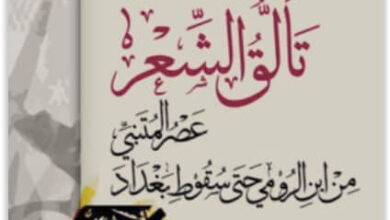 تَألُّقُ الشِّعْر
عَصْرُ المُتَنَبِّي
مِنْ ابنِ الرُّومِي حَتَى سُقُوطِ بَغْدَادَ